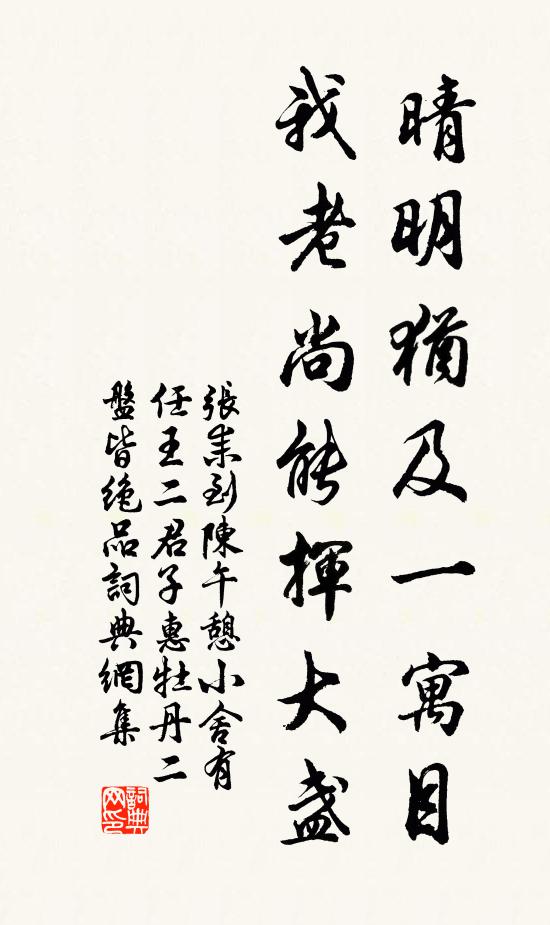 晴明猶及一寓目
我老尚能揮大盞
張耒到陳午憩小舍有
任王二君子惠牡丹二
盤皆絶品詞典網集
詞典
网印